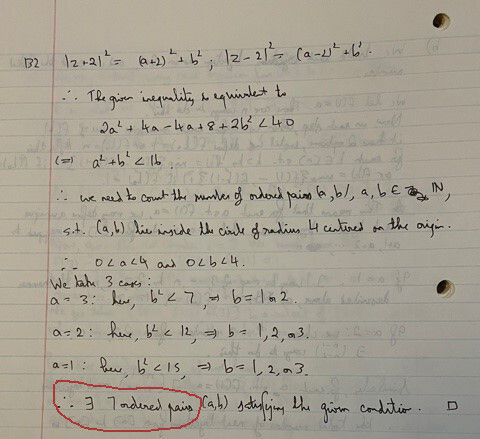 B2 |z+2|² = (a+2)² + b² ; |z-2|² = (a-2)² + b².
∴ The given inequality is equivalent to
2a² + 4a - 4a + 8 + 2b² < 40
(=) a² + b² < 16.
∴ we need to count the number of ordered pairs (a, b), a, b ∈ ℕ,
s.t. (a,b) lie inside the circle of radius 4 centred on the origin.
∴ 0 < a < 4 and 0 < b < 4.
We take 3 cases:
a = 3: here, b² < 7, ⇒ b = 1 or 2.
a = 2: here, b² < 12, ⇒ b = 1, 2, or 3.
a = 1: here, b² < 15, ⇒ b = 1, 2, or 3.
∴ ∃ 7 ordered pairs (a,b) satisfying the given condition. □